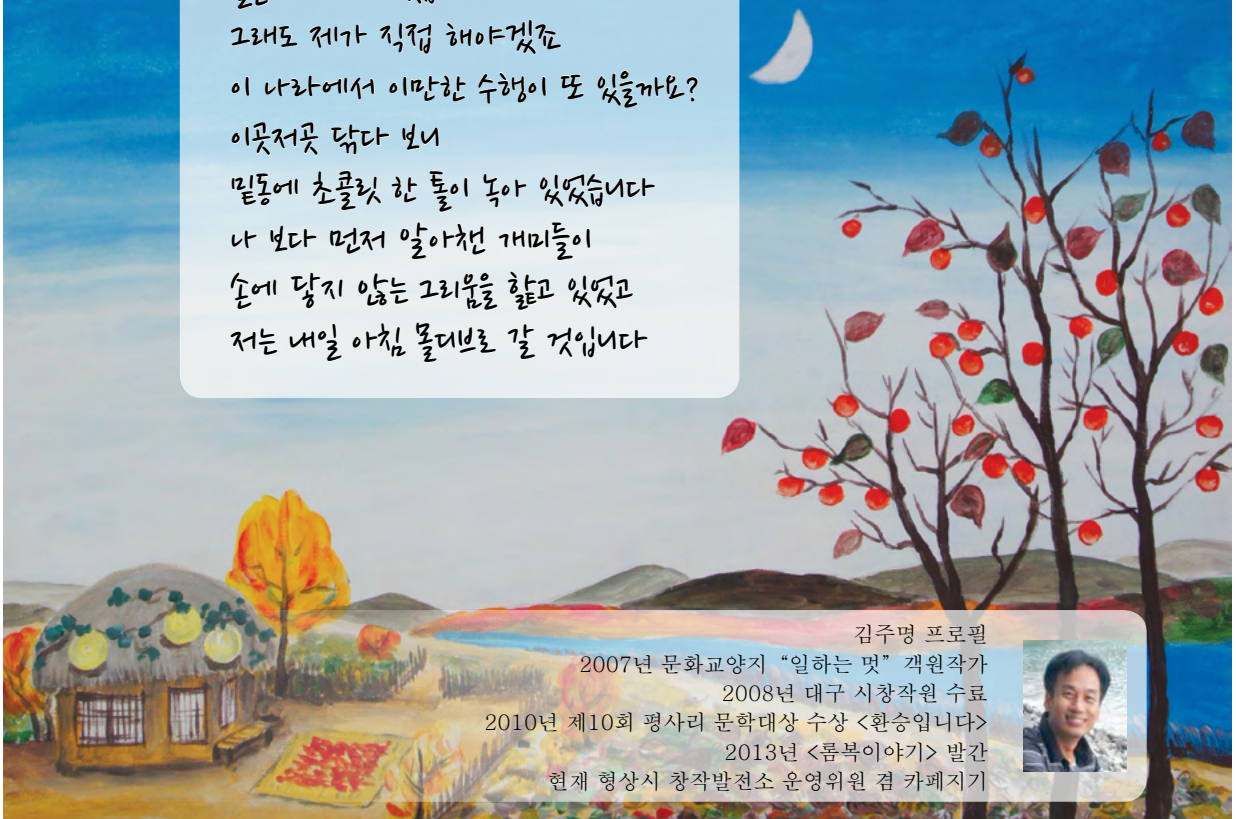 그래도 제가 직접 해야겠죠
이 나라에서 이만한 수행이 또 있을까요?
이곳저곳 닦다 보니
밑동에 초콜릿 한 톨이 녹아 있었습니다
나 보다 먼저 알아챈 개미들이
손에 닿지 않는 그리움을 핥고 있었고
저는 내일 아침 몰디브로 갈 것입니다
김주명 프로필
2007년 문화교양지 “일하는 멋” 객원작가
2008년 대구 시창작원 수료
2010년 제10회 평사리 문학대상 수상 <환승입니다>
2013년 <롬복이야기> 발간
현재 형상시 창작발전소 운영위원 겸 카페지기